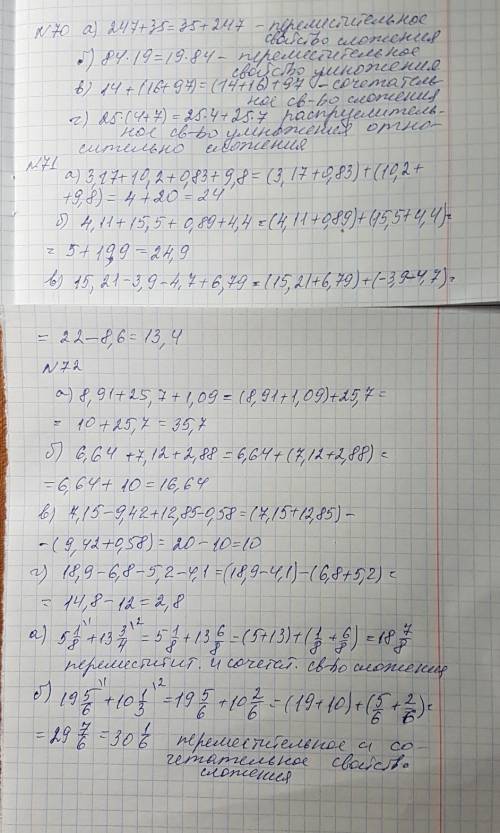 N70 а) 247+35=35+247 - переместительное
свойство сложения
б) 84·19=19·84 - переместительное
свойство умножения
в) 14+(16+97)=(14+16)+97 - сочетатель
ное св-во сложения
г) 25·(4+7)=25·4+25·7 распределитель-
ное св-во умножения отно-
сительно сложения
N71
а) 3,17+10,2+0,83+9,8=(3,17+0,83)+(10,2+
+9,8)=4+20=24
б) 4,11+15,5+0,89+4,4=(4,11+0,89)+(15,5+4,4)=
=5+19,9=24,9
в) 15,21-3,9-4,7+6,79=(15,21+6,79)+(-3,9-4,7)=
=22-8,6=13,4
N72
а) 8,91+25,7+1,09=(8,91+1,09)+25,7=
=10+25,7=35,7
б) 6,64+7,12+2,88=6,64+(7,12+2,88)=
=6,64+10=16,64
в) 7,15-9,42+12,85-0,58=(7,15+12,85)-
-(9,42+0,58)=20-10=10
г) 18,9-6,8-5,2-4,1=(18,9-4,1)-(6,8+5,2)=
=14,8-12=2,8
а) 5 1/8 \1 + 13 3/4 \2 = 5 1/8 + 13 6/8 = (5+13)+(1/8+6/8) = 18 7/8
переместит. и сочетат. св-во сложения
б) 19 5/6 \1 + 10 1/3 \2 = 19 5/6 + 10 2/6 = (19+10)+(5/6+2/6)=
=29 7/6=30 1/6 переместительное и со-
четательное свойство
сложения